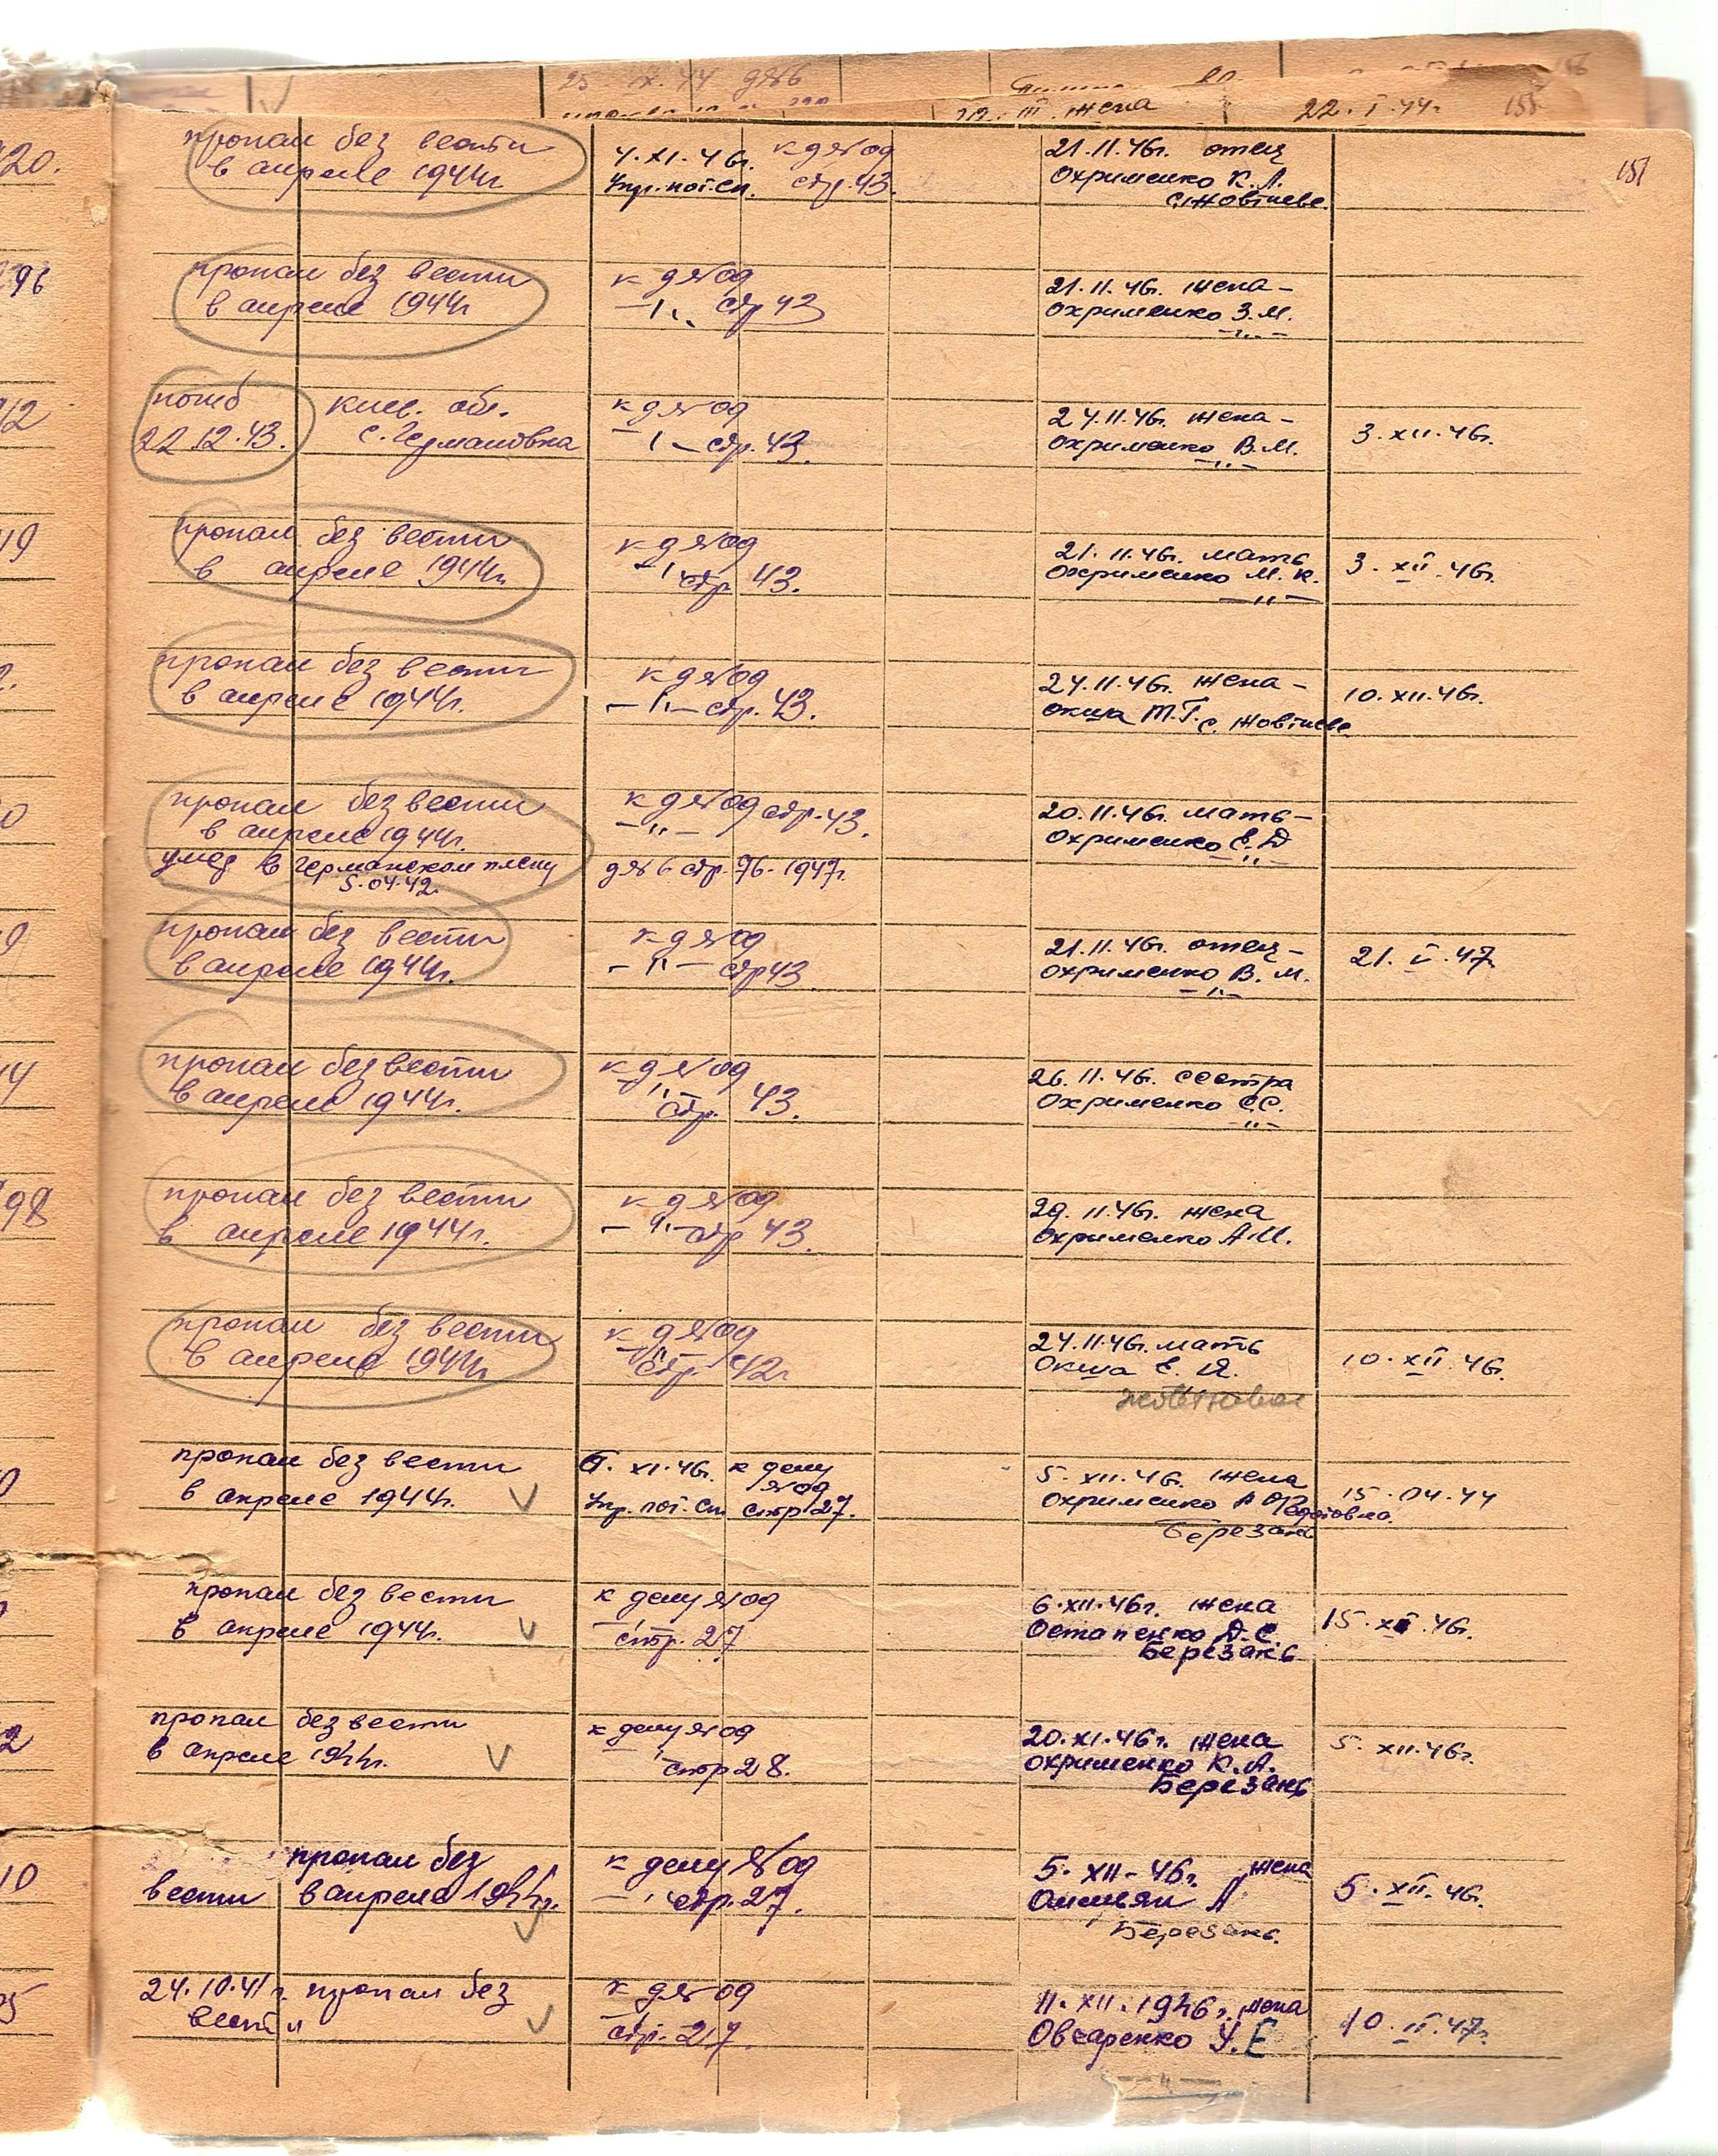 25 IX.44 д№6
22. III. жена 22. I. 44г 155
151
20.
пропал без вести
в апреле 1944г
4.XI.46г. к д№од
Упр.пот.сп. стр.43.
21.11.46г. отец
Охрименко К.Л.
с.Жовтневе
96
пропал без вести
в апреле 1944г
к д№од
—"— стр 43
21.11.46г. жена-
Охрименко З.М.
—"—
12
погиб Киев. обл.
22.12.43. с. Германовка
к д№од
—"— стр.43.
24.11.46г. жена-
Охрименко В.М.
—"—
3.XII.46г.
19
пропал без вести
в апреле 1944г.
к д№од
—"— стр 43.
21.11.46г. мать
Охрименко М.К.
—"—
3.XII.46г.
2.
пропал без вести
в апреле 1944г.
к д№од
—"— стр.43.
24.11.46г. жена-
Окша Т.Г. с. Жовтневе
10.XII.46г.
0
пропал без вести
в апреле 1944г.
умер в германском плену
5.04.42.
к д№од стр.43.
—"—
д№6 стр.76-1947г.
20.11.46г. мать-
Охрименко Е.Д
—"—
9
пропал без вести
в апреле 1944г.
к д№од
—"— стр43
21.11.46г. отец-
Охрименко В.М.
—"—
21.V.47
14
пропал без вести
в апреле 1944г.
к д№од
—"— стр. 43.
26.11.46г. сестра
Охрименко С.С.
—"—
98
пропал без вести
в апреле 1944г.
к д№од
—"— стр 43.
29.11.46г. жена
Охрименко А.И.
пропал без вести
в апреле 1944г
к д№од
—"— стр. 42г
24.11.46г. мать
Окша Е.Я.
жовтневое
10.XII.46г.
0
пропал без вести
в апреле 1944г.
6.XI.46г. к делу
№од
Упр. пот. сп. стр 27.
5.XII.46г. жена
Охрименко А Федотовна.
Березань
15.04.44
пропал без вести
в апреле 1944г.
к делу №од
—"— стр. 27
6.XII.46г. жена
Остапенко Д.С.
Березань
15.XII.46г.
2
пропал без вести
в апреле 1944г.
к делу №од
—"— стр 28.
20.XI.46г. жена
Охрименко К.А.
Березань
5.XII.46г.
10
пропал без
вести в апреле 1944г.
к делу №од
—"— стр.27.
5.XII-46г. жена
Омельян А
Березань.
5.XII.46г.
5
24.10.41г. пропал без
вести
к д№од
стр. 27.
11.XII.1946г. жена
Овчаренко У.Е
—"—
10.II.47г.